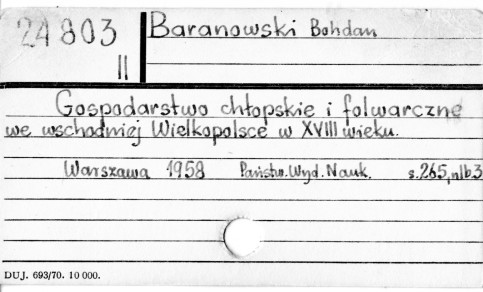 24803
II
Baranowski Bohdan
Gospodarstwo chłopskie i folwarczne
we wschodniej Wielkopolsce w XVIII wieku.
Warszawa 1958 Państw. Wyd. Nauk. s. 265, nlb 3
DUJ. 693/70. 10 000.